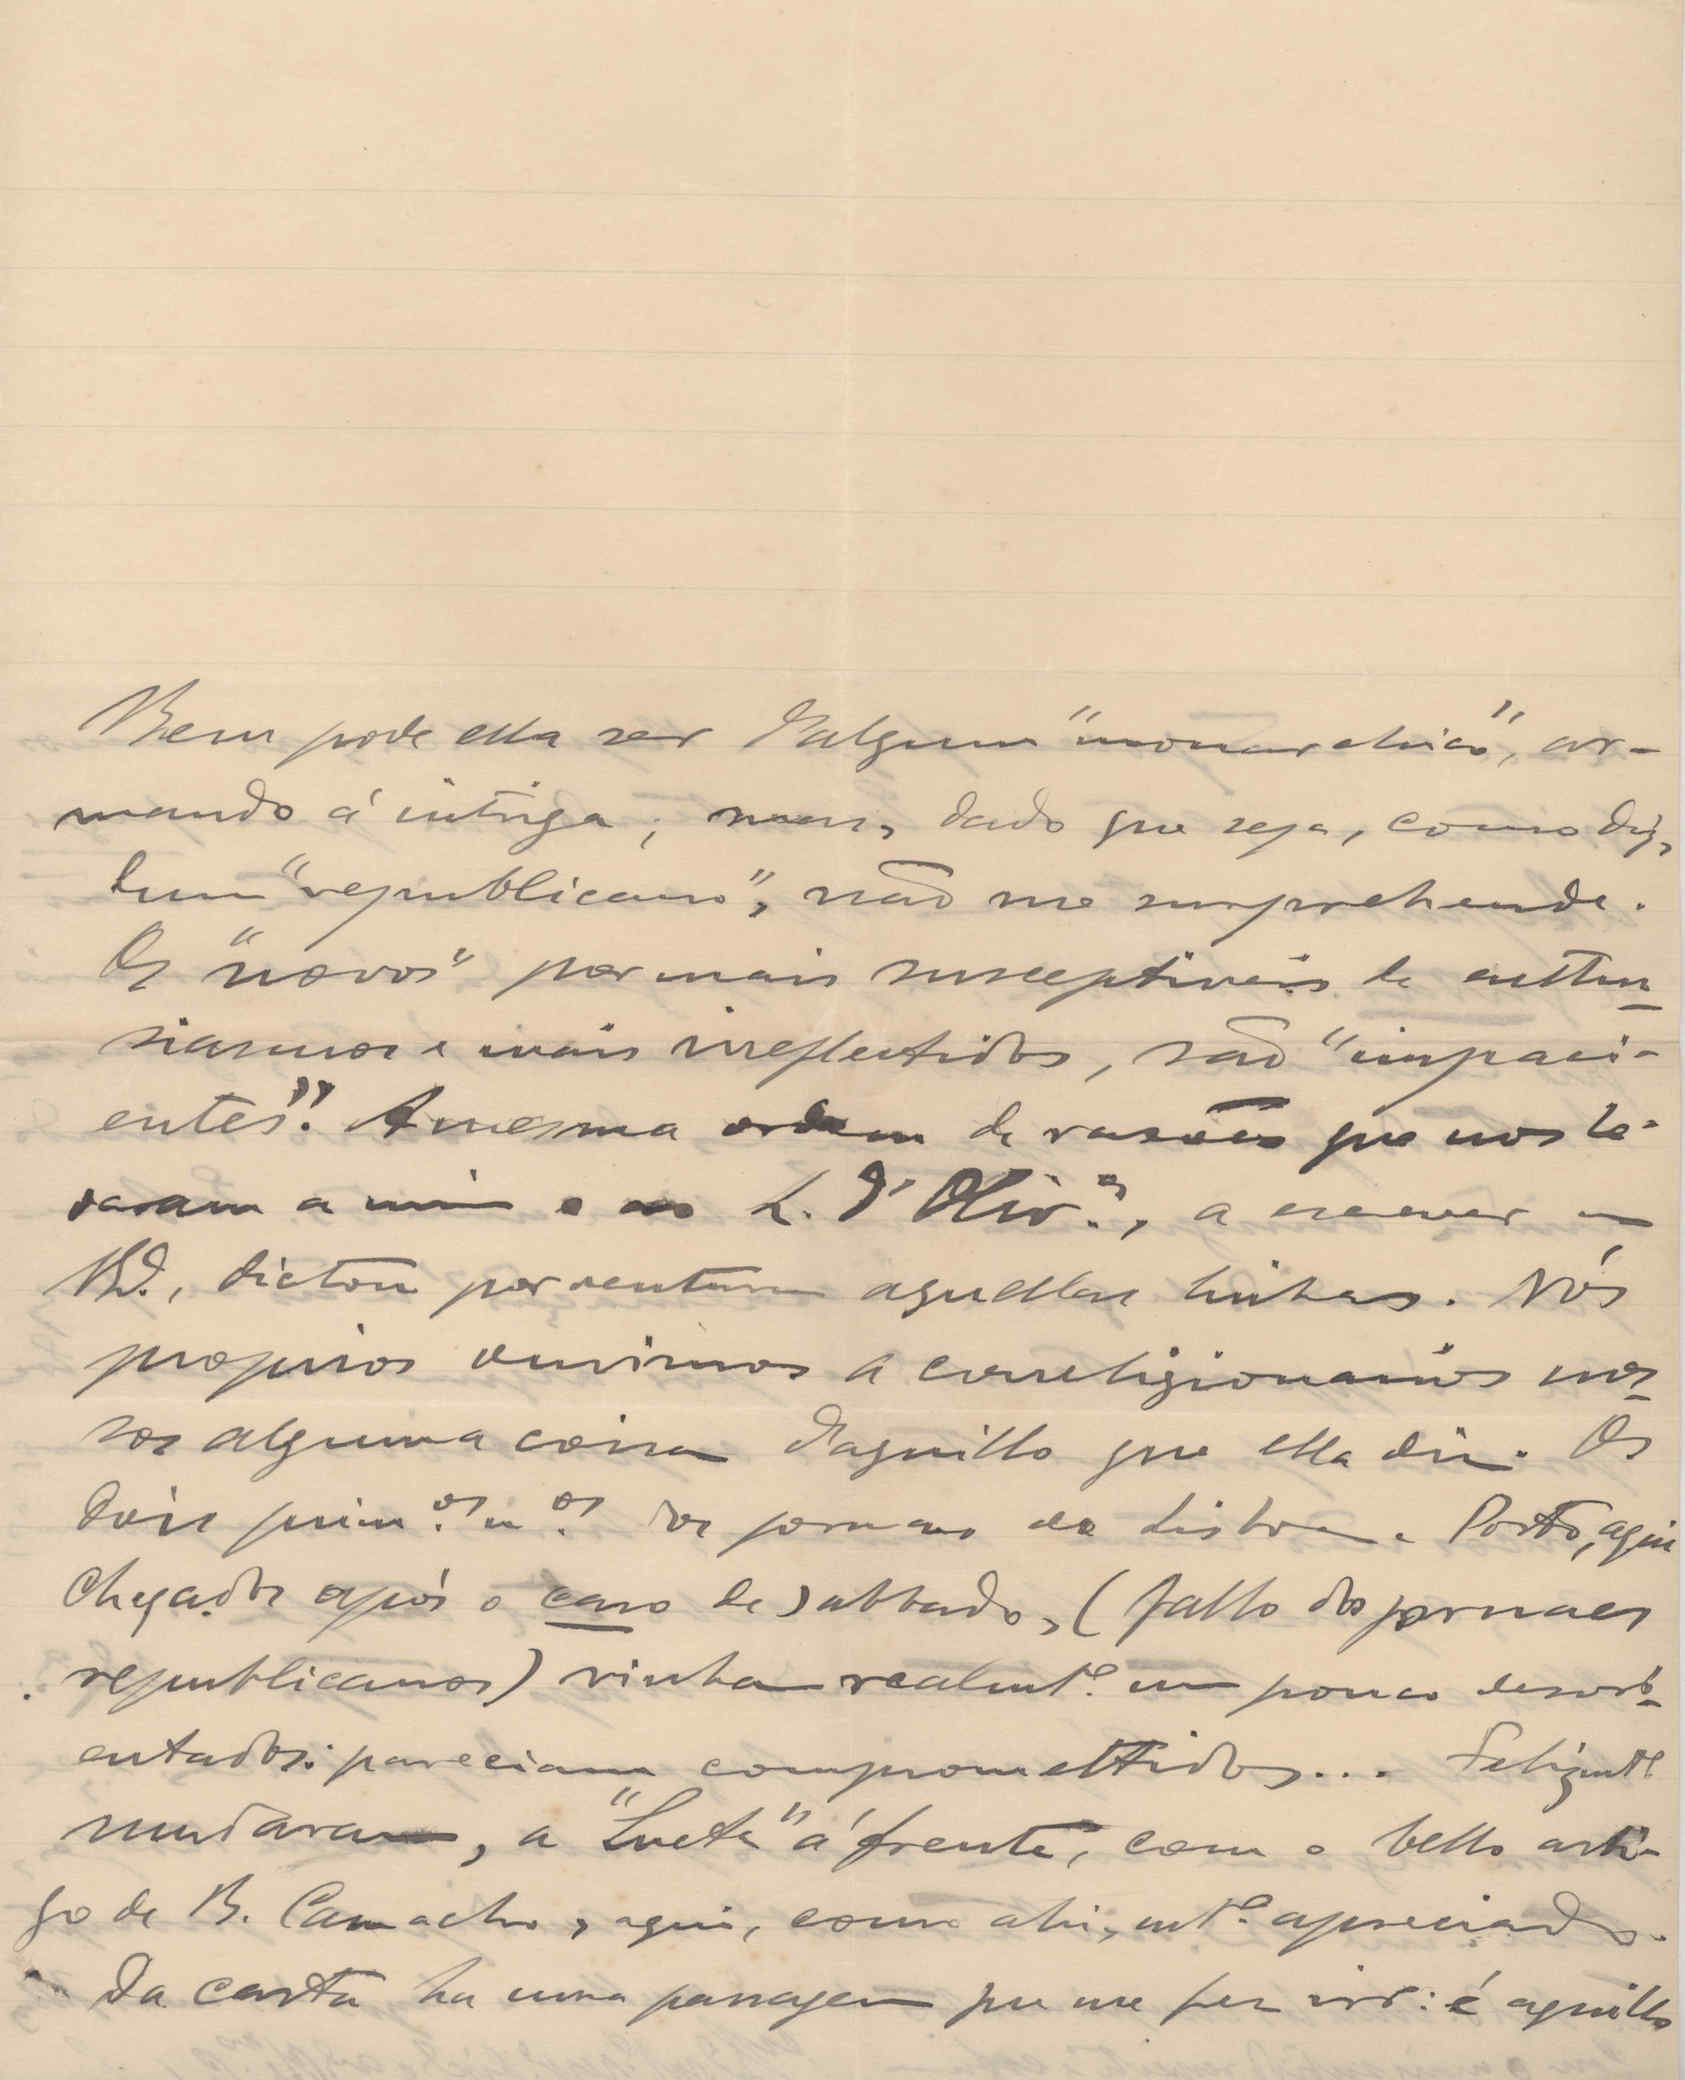 Bem pode ella ser d'algum "monarchico", ar-
mando á intriga; mas, dado que seja, como diz,
dum "republicano", não me surprehende.
Os "novos" por mais susceptiveis de enthu-
siasmos e mais irreflectidos, são "impaci-
entes". A mesma ordem de rasões que nos le-
varam a mim e ao L. d'Oliv.ª, a escrever a
V. , dictou porventura aquellas linhas. Nós
proprios ouvimos a correligionarios nos-
sos alguma coisa d'aquillo que ella diz. Os
dois prim.os n.os dos jornaes de Lisboa e Porto, aqui
chegados após o caso de sabbado, (fallo dos jornaes
republicanos) vinham realmt.e um pouco desori-
entados: pareciam compromettidos... Felizmte
mudaram, a "Lucta" á frente, com o bello arti-
go de B. Camacho, aqui, como ahi, mt.o apreciado.
Da carta ha uma passagem que me fez rir: é aquillo